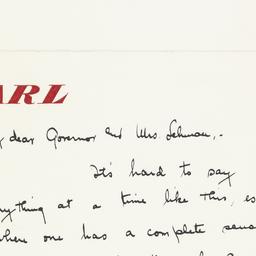 ARL
y dear Governor and Mrs. Lehman,-
It's hard to say
nything at a time like this, es
where one has a complete sense